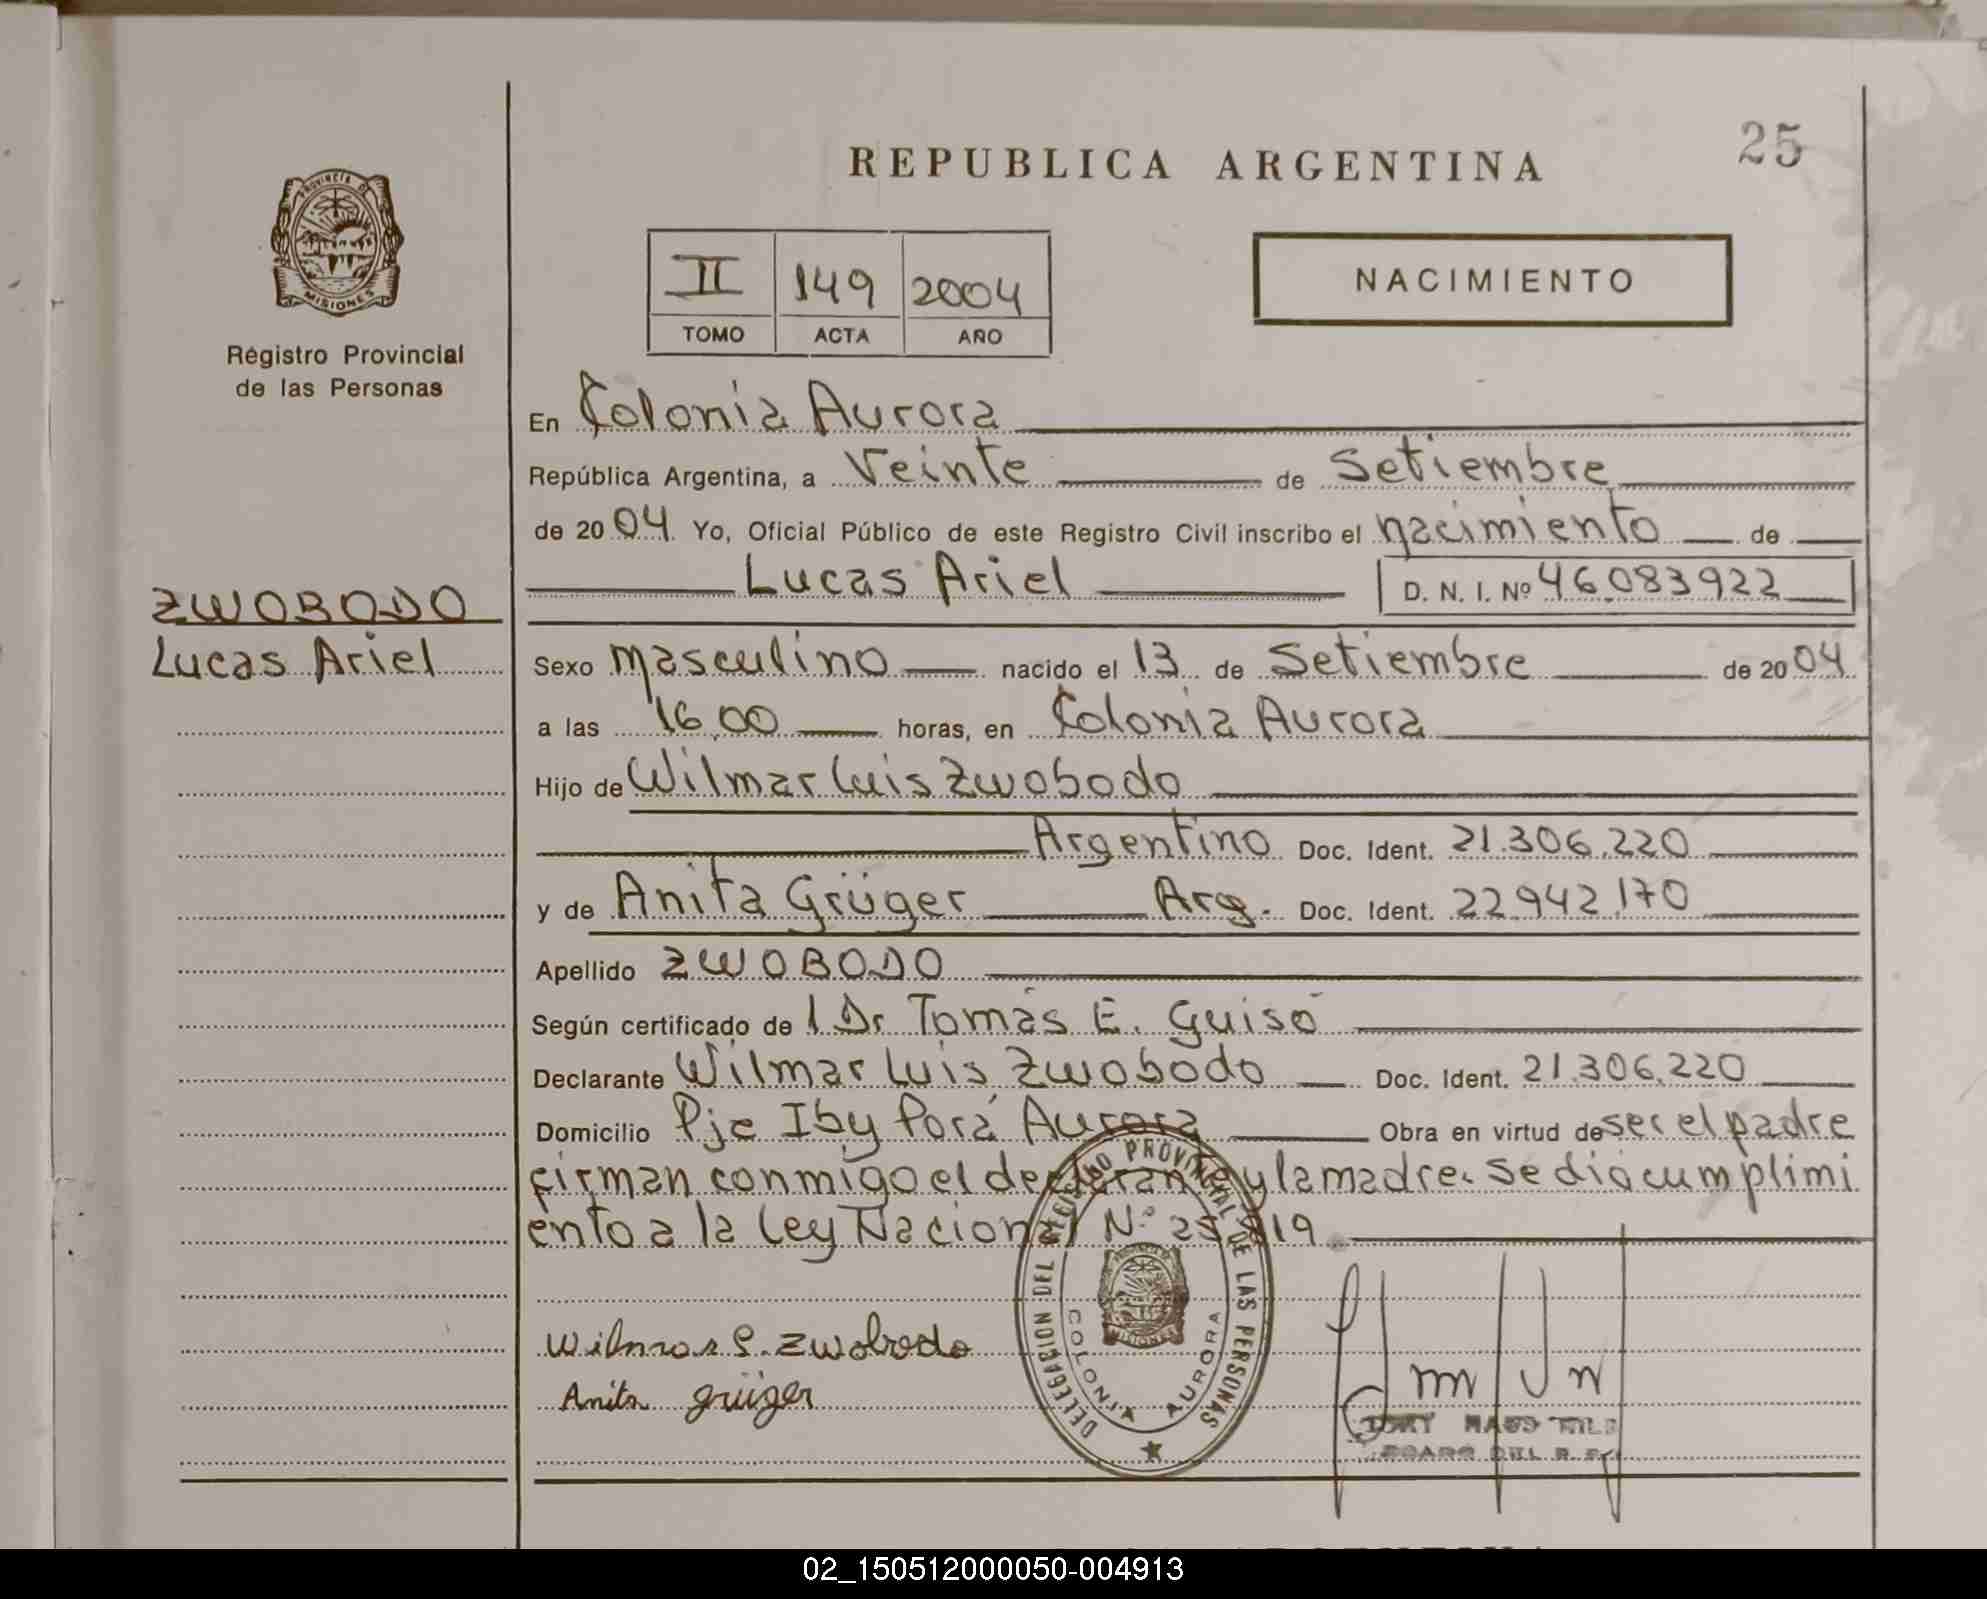 25
REPUBLICA ARGENTINA
PROVINCIA DE
MISIONES
Registro Provincial
de las Personas
II 149 2004
TOMO ACTA AÑO
NACIMIENTO
En Colonia Aurora
República Argentina, a Veinte de Setiembre
de 2004 Yo, Oficial Público de este Registro Civil inscribo el nacimiento de
Lucas Ariel D. N. I. Nº 46.083922
ZWOBODO
Lucas Ariel
Sexo masculino nacido el 13 de Setiembre de 2004
a las 16,00 horas, en Colonia Aurora
Hijo de Wilmar Luis Zwobodo
Argentino Doc. Ident. 21.306.220
y de Anita Grüger Arg. Doc. Ident. 22.942.170
Apellido ZWOBODO
Según certificado de l Dr Tomás E. Guisó
Declarante Wilmar Luis Zwobodo Doc. Ident. 21.306.220
Domicilio Pje Iby Porá Aurora Obra en virtud de ser el padre
firman conmigo el declarante y la madre. Se dió cumplimi
ento a la Ley Nacional Nº 25.819
Wilmar L. Zwobodo
Anita grüger
DELEGACION DEL REGISTRO PROVINCIAL DE LAS PERSONAS
COLONIA AURORA
MISIONES
02_150512000050-004913